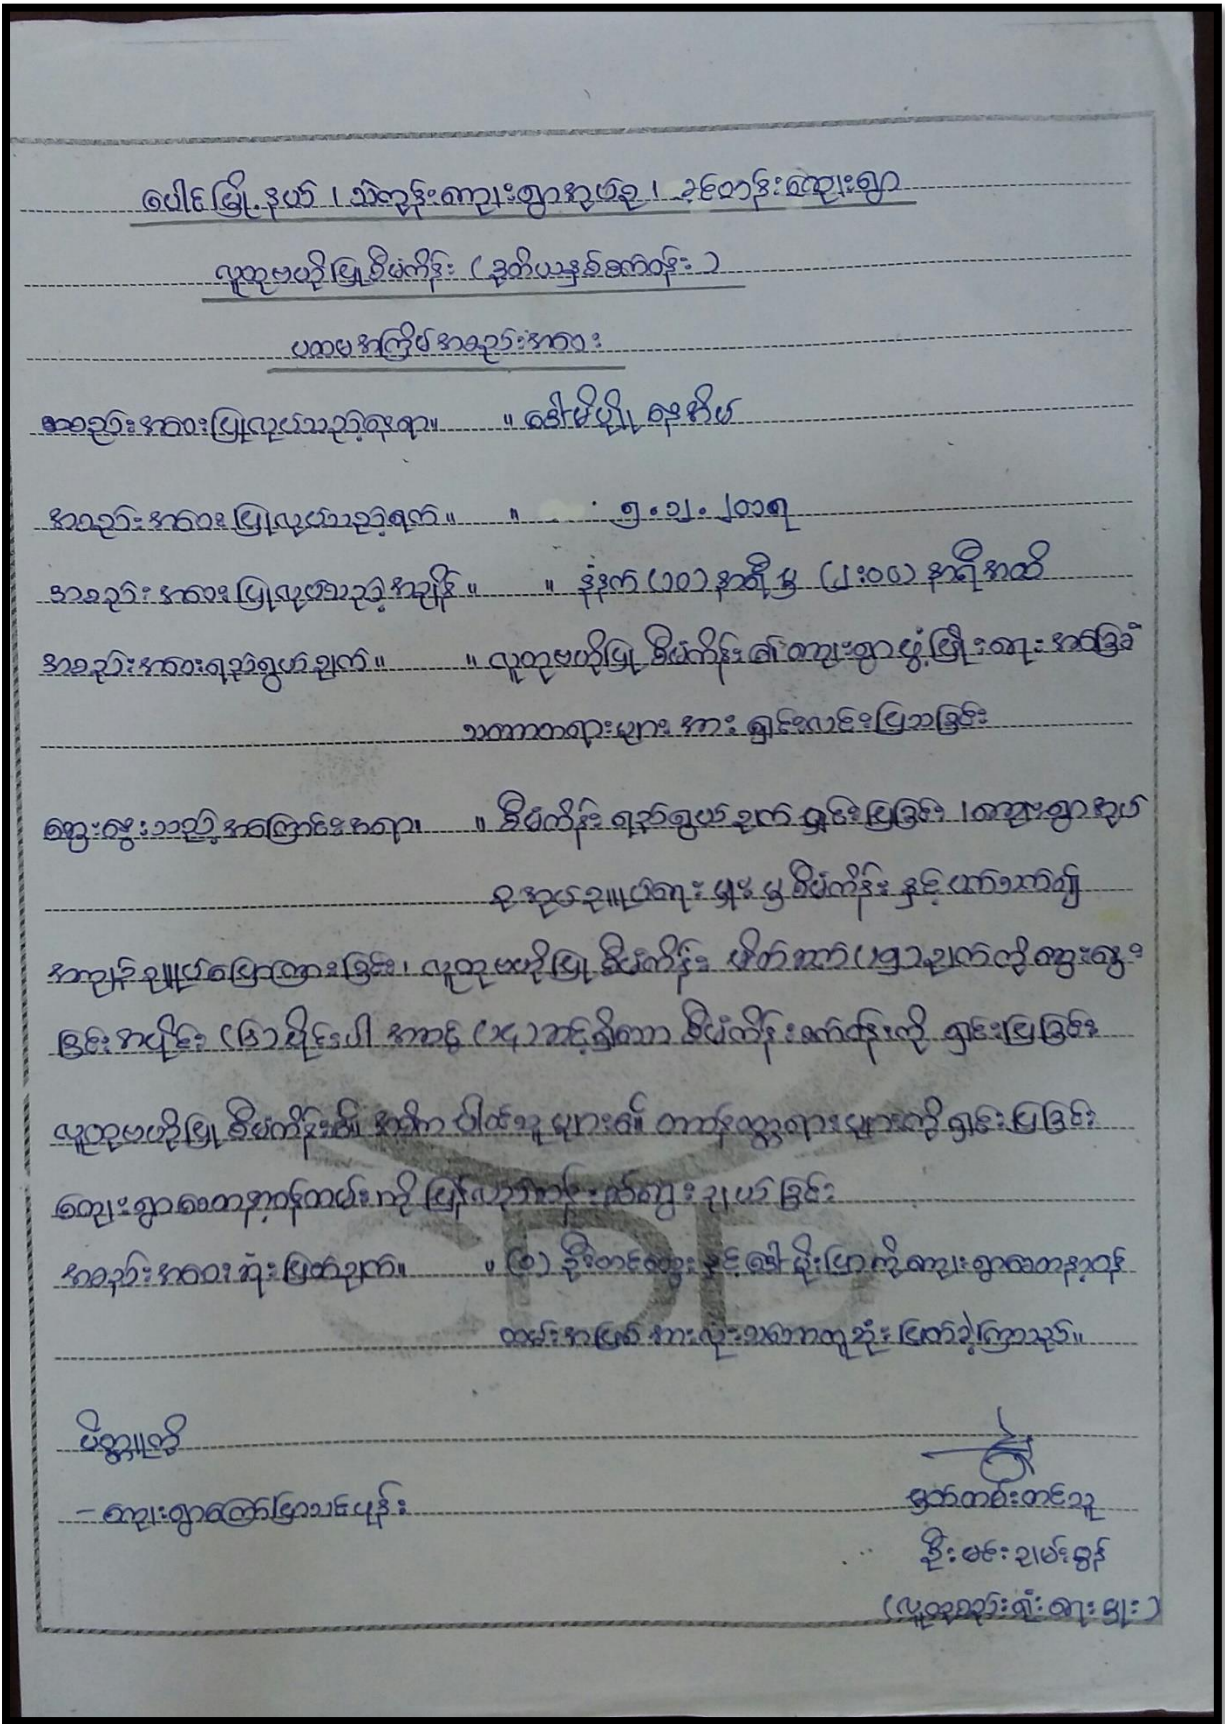 ပေါင်မြို့နယ်၊ သဲကုန်းကျေးရွာအုပ်စု၊ ခင်တန်းကျေးရွာ
လူထုဗဟိုပြုစီမံကိန်း (ဒုတိယနှစ်စက်ဝန်း)
ပထမအကြိမ်အစည်းအဝေး
အစည်းအဝေးပြုလုပ်သည့်နေရာ။ ။ ဒေါ်မိပျို နေအိမ်
အစည်းအဝေးပြုလုပ်သည့်ရက်။ ။ ၅.၁၂.၂၀၁၅
အစည်းအဝေးပြုလုပ်သည့်အချိန်။ ။ နံနက် (၁၀) နာရီမှ (၂:၀၀) နာရီအထိ
အစည်းအဝေးရည်ရွယ်ချက်။ ။ လူထုဗဟိုပြုစီမံကိန်း၏ ကျေးရွာဖွံ့ဖြိုးရေး အခြေခံ
သဘောတရားများအား ရှင်းလင်းပြသခြင်း
ဆွေးနွေးသည့်အကြောင်းအရာ။ ။ စီမံကိန်းရည်ရွယ်ချက် ရှင်းပြခြင်း၊ ကျေးရွာအုပ်
စု အုပ်ချုပ်ရေးမှူးမှ စီမံကိန်းနှင့်ပတ်သက်၍
အကျဉ်းချုပ်ပြောကြားခြင်း၊ လူထုဗဟိုပြုစီမံကိန်း ဖိတ်ခေါ် (၁၅) ချက်ကိုဆွေးနွေး
ခြင်း အပိုင်း (၆) ပိုင်းပါ အဆင့် (၁၄) ဆင့်ရှိသော စီမံကိန်းစက်ဝန်းကို ရှင်းပြခြင်း
လူထုဗဟိုပြုစီမံကိန်း၏ အဓိကပါဝင်သူများ၏ တာဝန်ဝတ္တရားများကို ရှင်းပြခြင်း
ကျေးရွာစေတနာ့ဝန်ထမ်းကို ပြန်လည်ရွေးချယ်ခြင်း
အစည်းအဝေးဆုံးဖြတ်ချက်။ ။ (၁) ဦးတင်ထွေးနှင့် ဒေါ်မိုးပြာကို ကျေးရွာစေတနာ့ဝန်
ထမ်းအဖြစ် အားလုံးသဘောတူဆုံးဖြတ်ခဲ့ကြသည်။
မိတ္တူကို
- ကျေးရွာကြော်ငြာသင်ပုန်း
မှတ်တမ်းတင်သူ
ဦးမင်းချမ်းမွန်
(လူထုစည်းရုံးရေးမှူး)
CDD